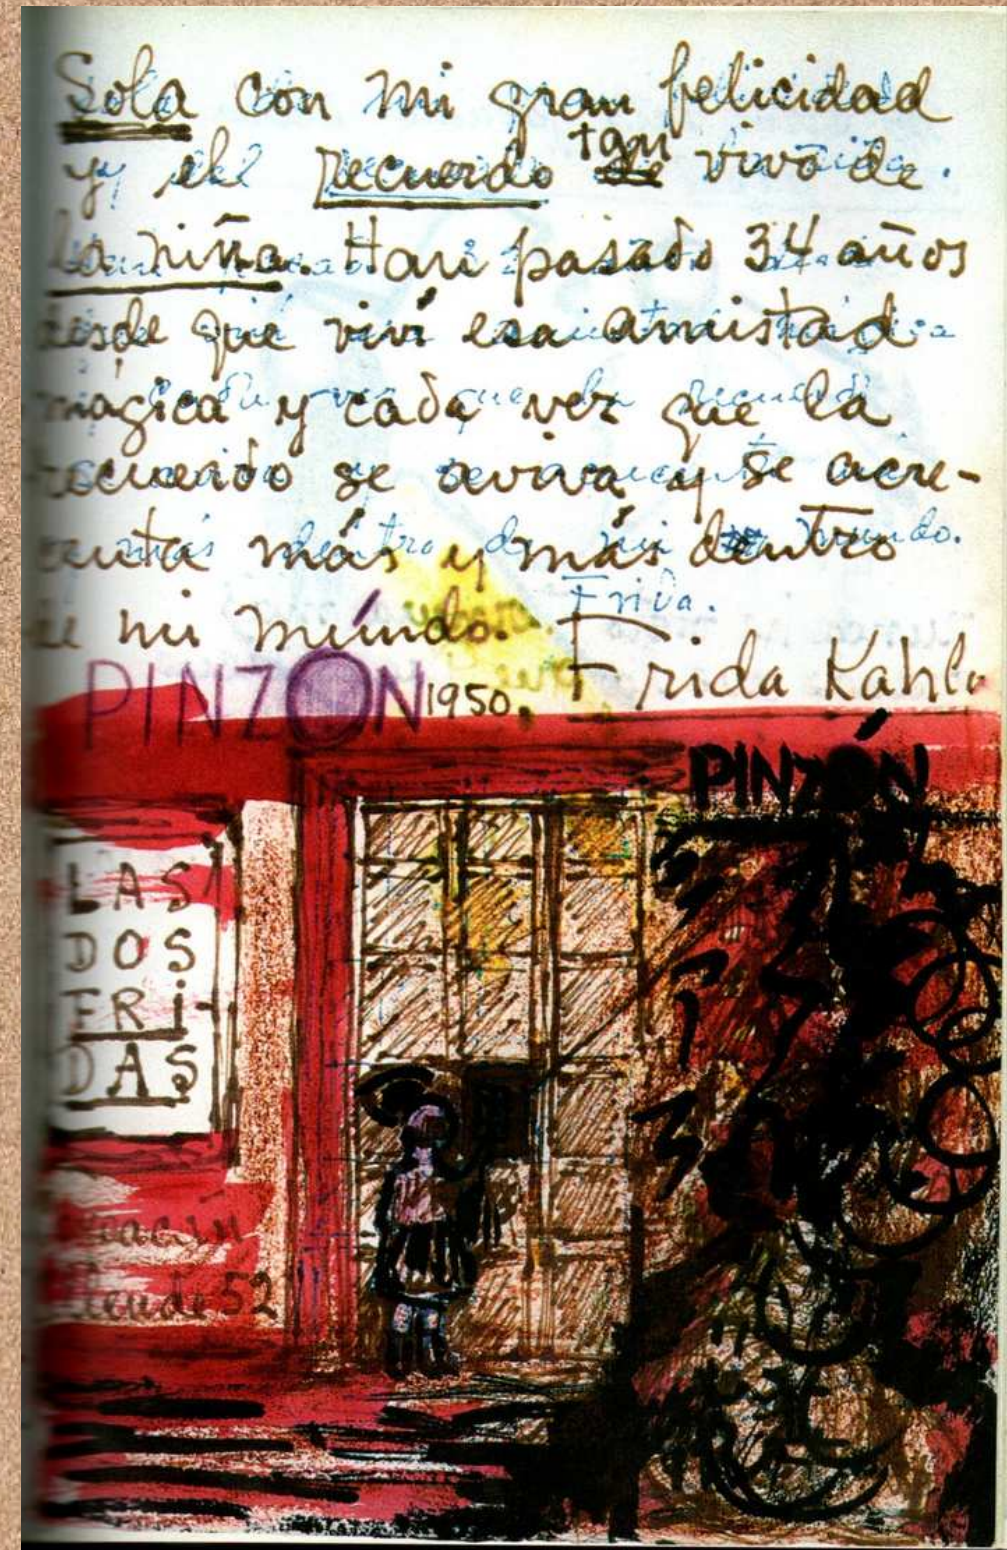 Sola con mi gran felicidad
y el recuerdo tan vivo de
la niña. Han pasado 34 años
desde que viví esa amistad
mágica y cada vez que la
recuerdo se aviva y se acre-
centa más y más dentro
de mi mundo.
PINZÓN 1950. Frida Kahlo
Frida.
PINZÓN
LAS
DOS
FRI-
DAS
52